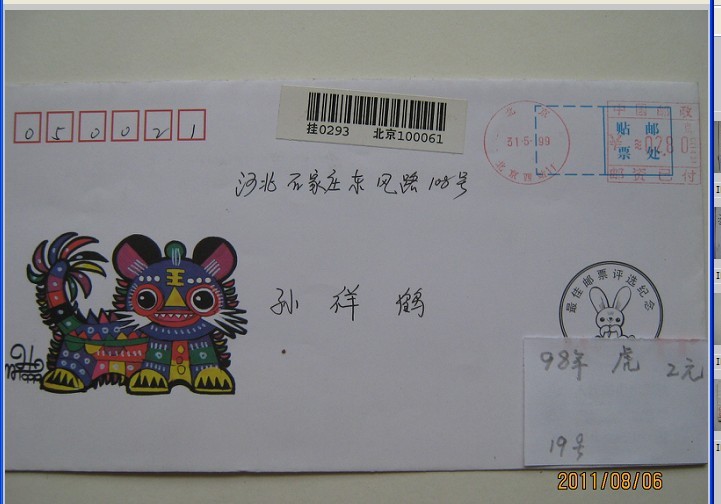 050021
挂0293 北京100061
北京
31.5.99
中国邮政
贴邮
票处
0280
邮资已付
河北石家庄东风路108号
孙祥鹤
王
最佳邮票评选纪念
98年 虎 2元
19号
2011/08/06